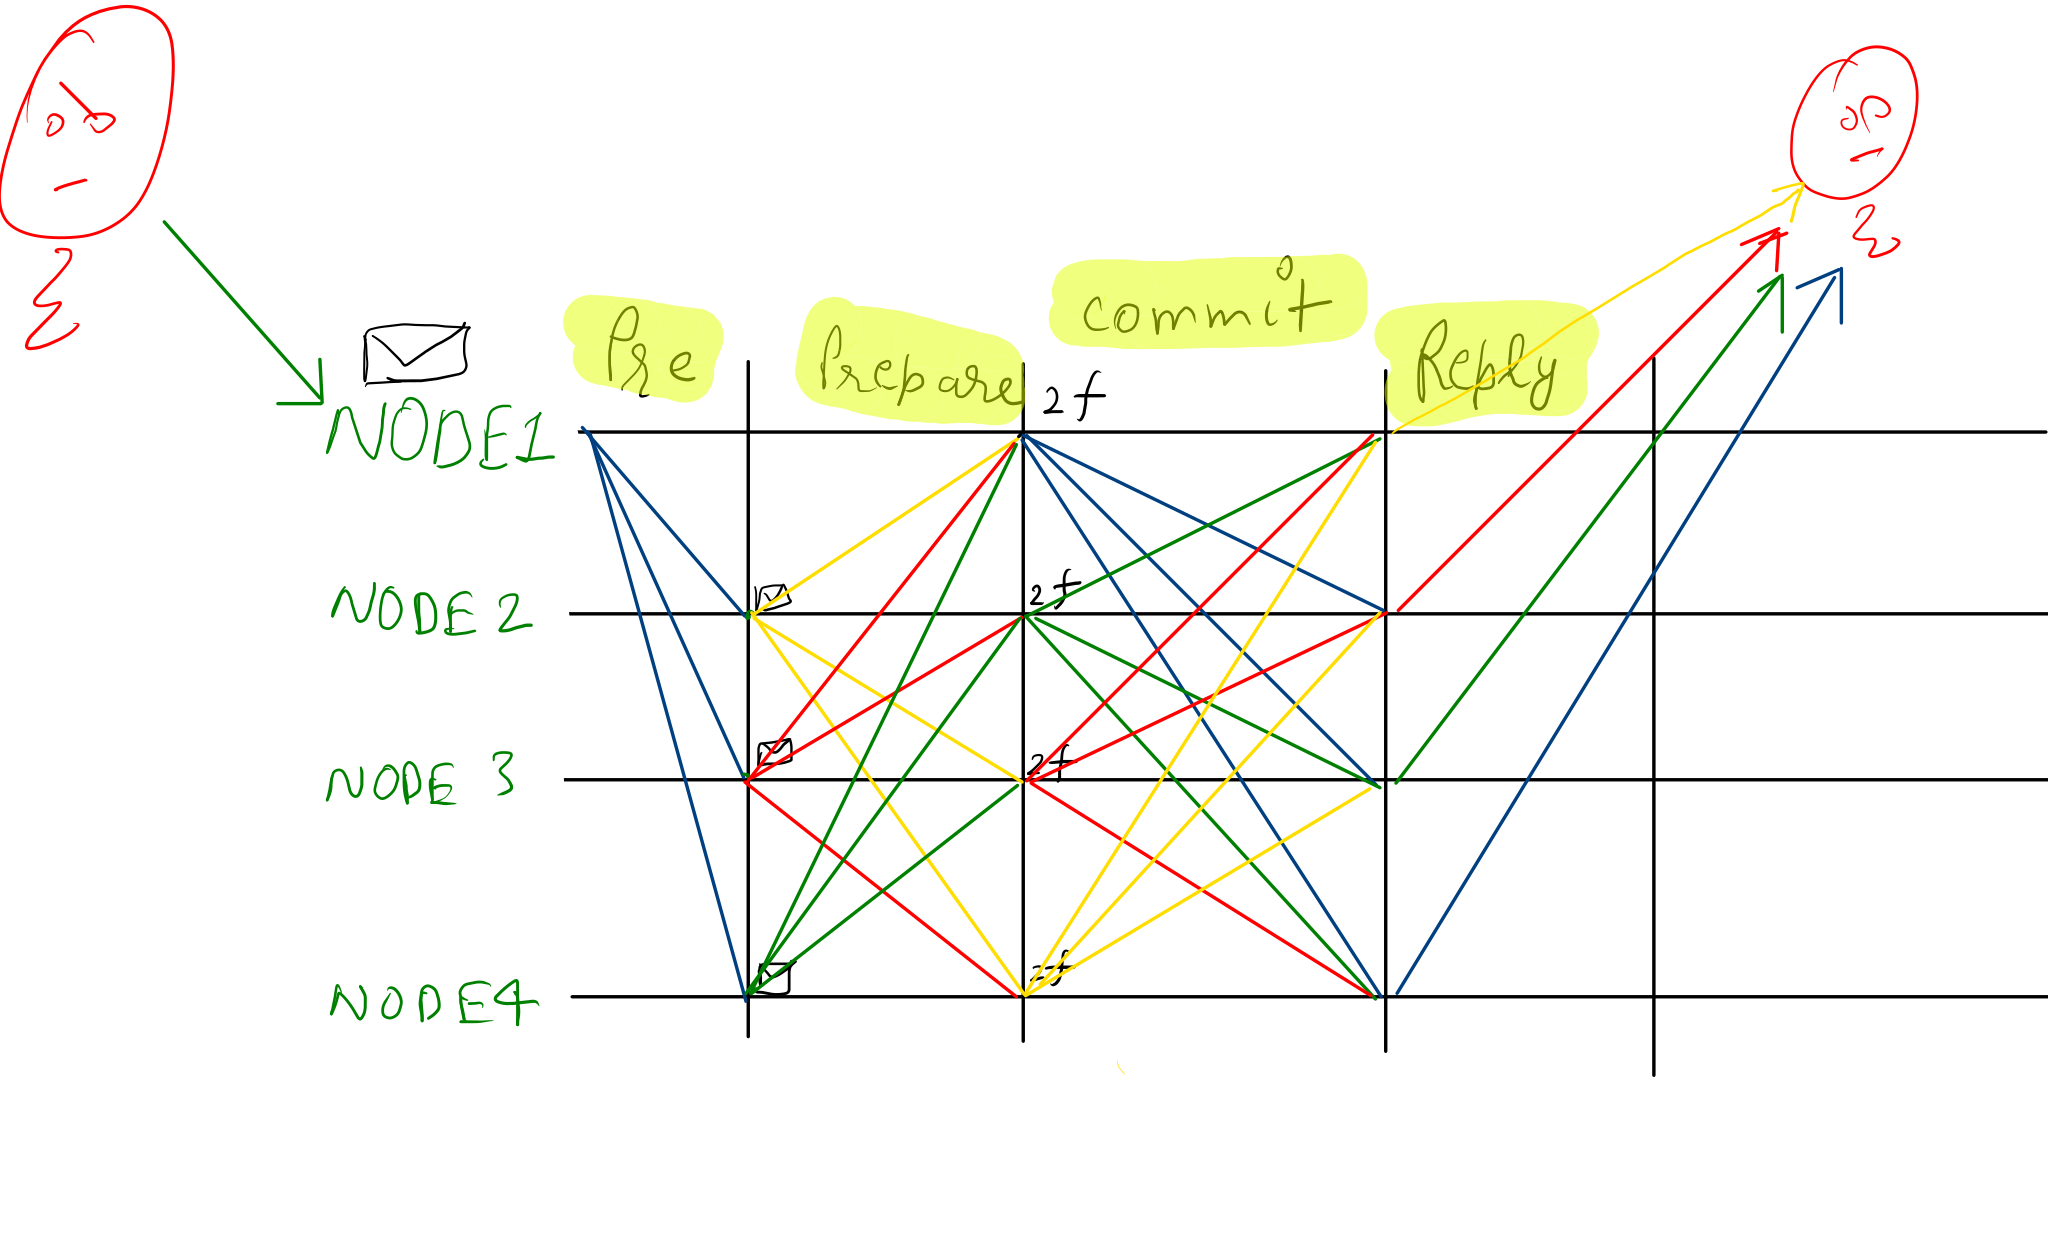 Pre Prepare commit Reply
2f
NODE1
2f
NODE 2
2f
NODE 3
2f
NODE4